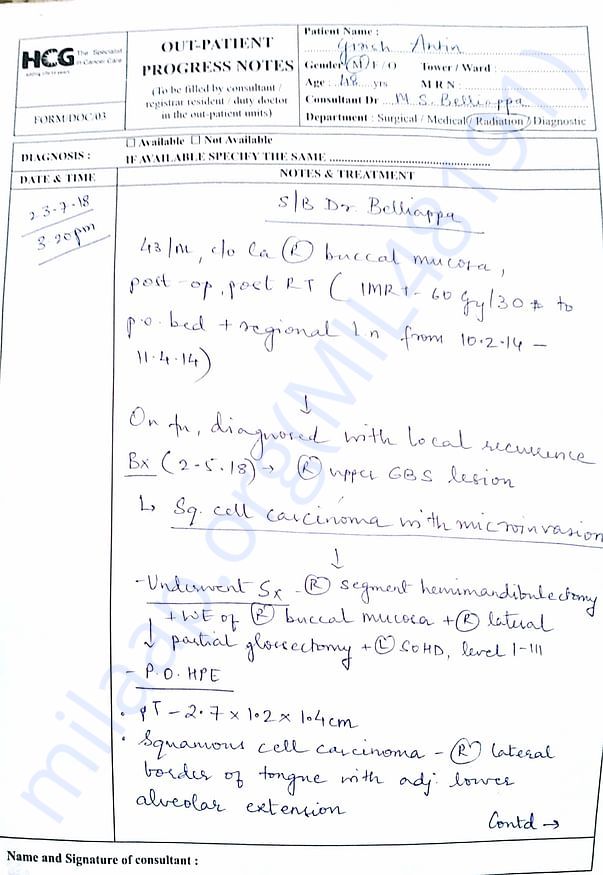 HCG The Specialist in Cancer Care
adding life to years
FORM DOC 03
OUT-PATIENT
PROGRESS NOTES
(To be filled by consultant /
registrar resident / duty doctor
in the out-patient units)
Patient Name :
Girish Antin
Gender (M) / F / O Tower / Ward :
Age : 48 yrs M R N :
Consultant Dr M. S. Belliappa
Department : Surgical / Medical / Radiation / Diagnostic
DIAGNOSIS : ☐ Available ☐ Not Available
IF AVAILABLE SPECIFY THE SAME
DATE & TIME NOTES & TREATMENT
23-7-18
3.20pm
S/B Dr. Belliappa
43/M, c/o Ca (R) buccal mucosa,
post-op, post RT ( IMRT - 60 Gy/30 # to
p.o. bed + regional L.n from 10.2.14 –
11.4.14)
↓
On fu, diagnosed with local recurrence
Bx (2-5-18) → (R) upper GBS lesion
↳ Sq. cell carcinoma with microinvasion
↓
- Underwent Sx - (R) segment hemimandibulectomy
+ WE of (R) buccal mucosa + (R) lateral
↓ partial glossectomy + (L) SOHD, level I-III
- P.O. HPE
• pT - 2.7 x 1.2 x 1.4 cm
• Squamous cell carcinoma - (R) lateral
border of tongue with adj. lower
alveolar extension
Contd →
Name and Signature of consultant :
milaap.org(MIL48191)